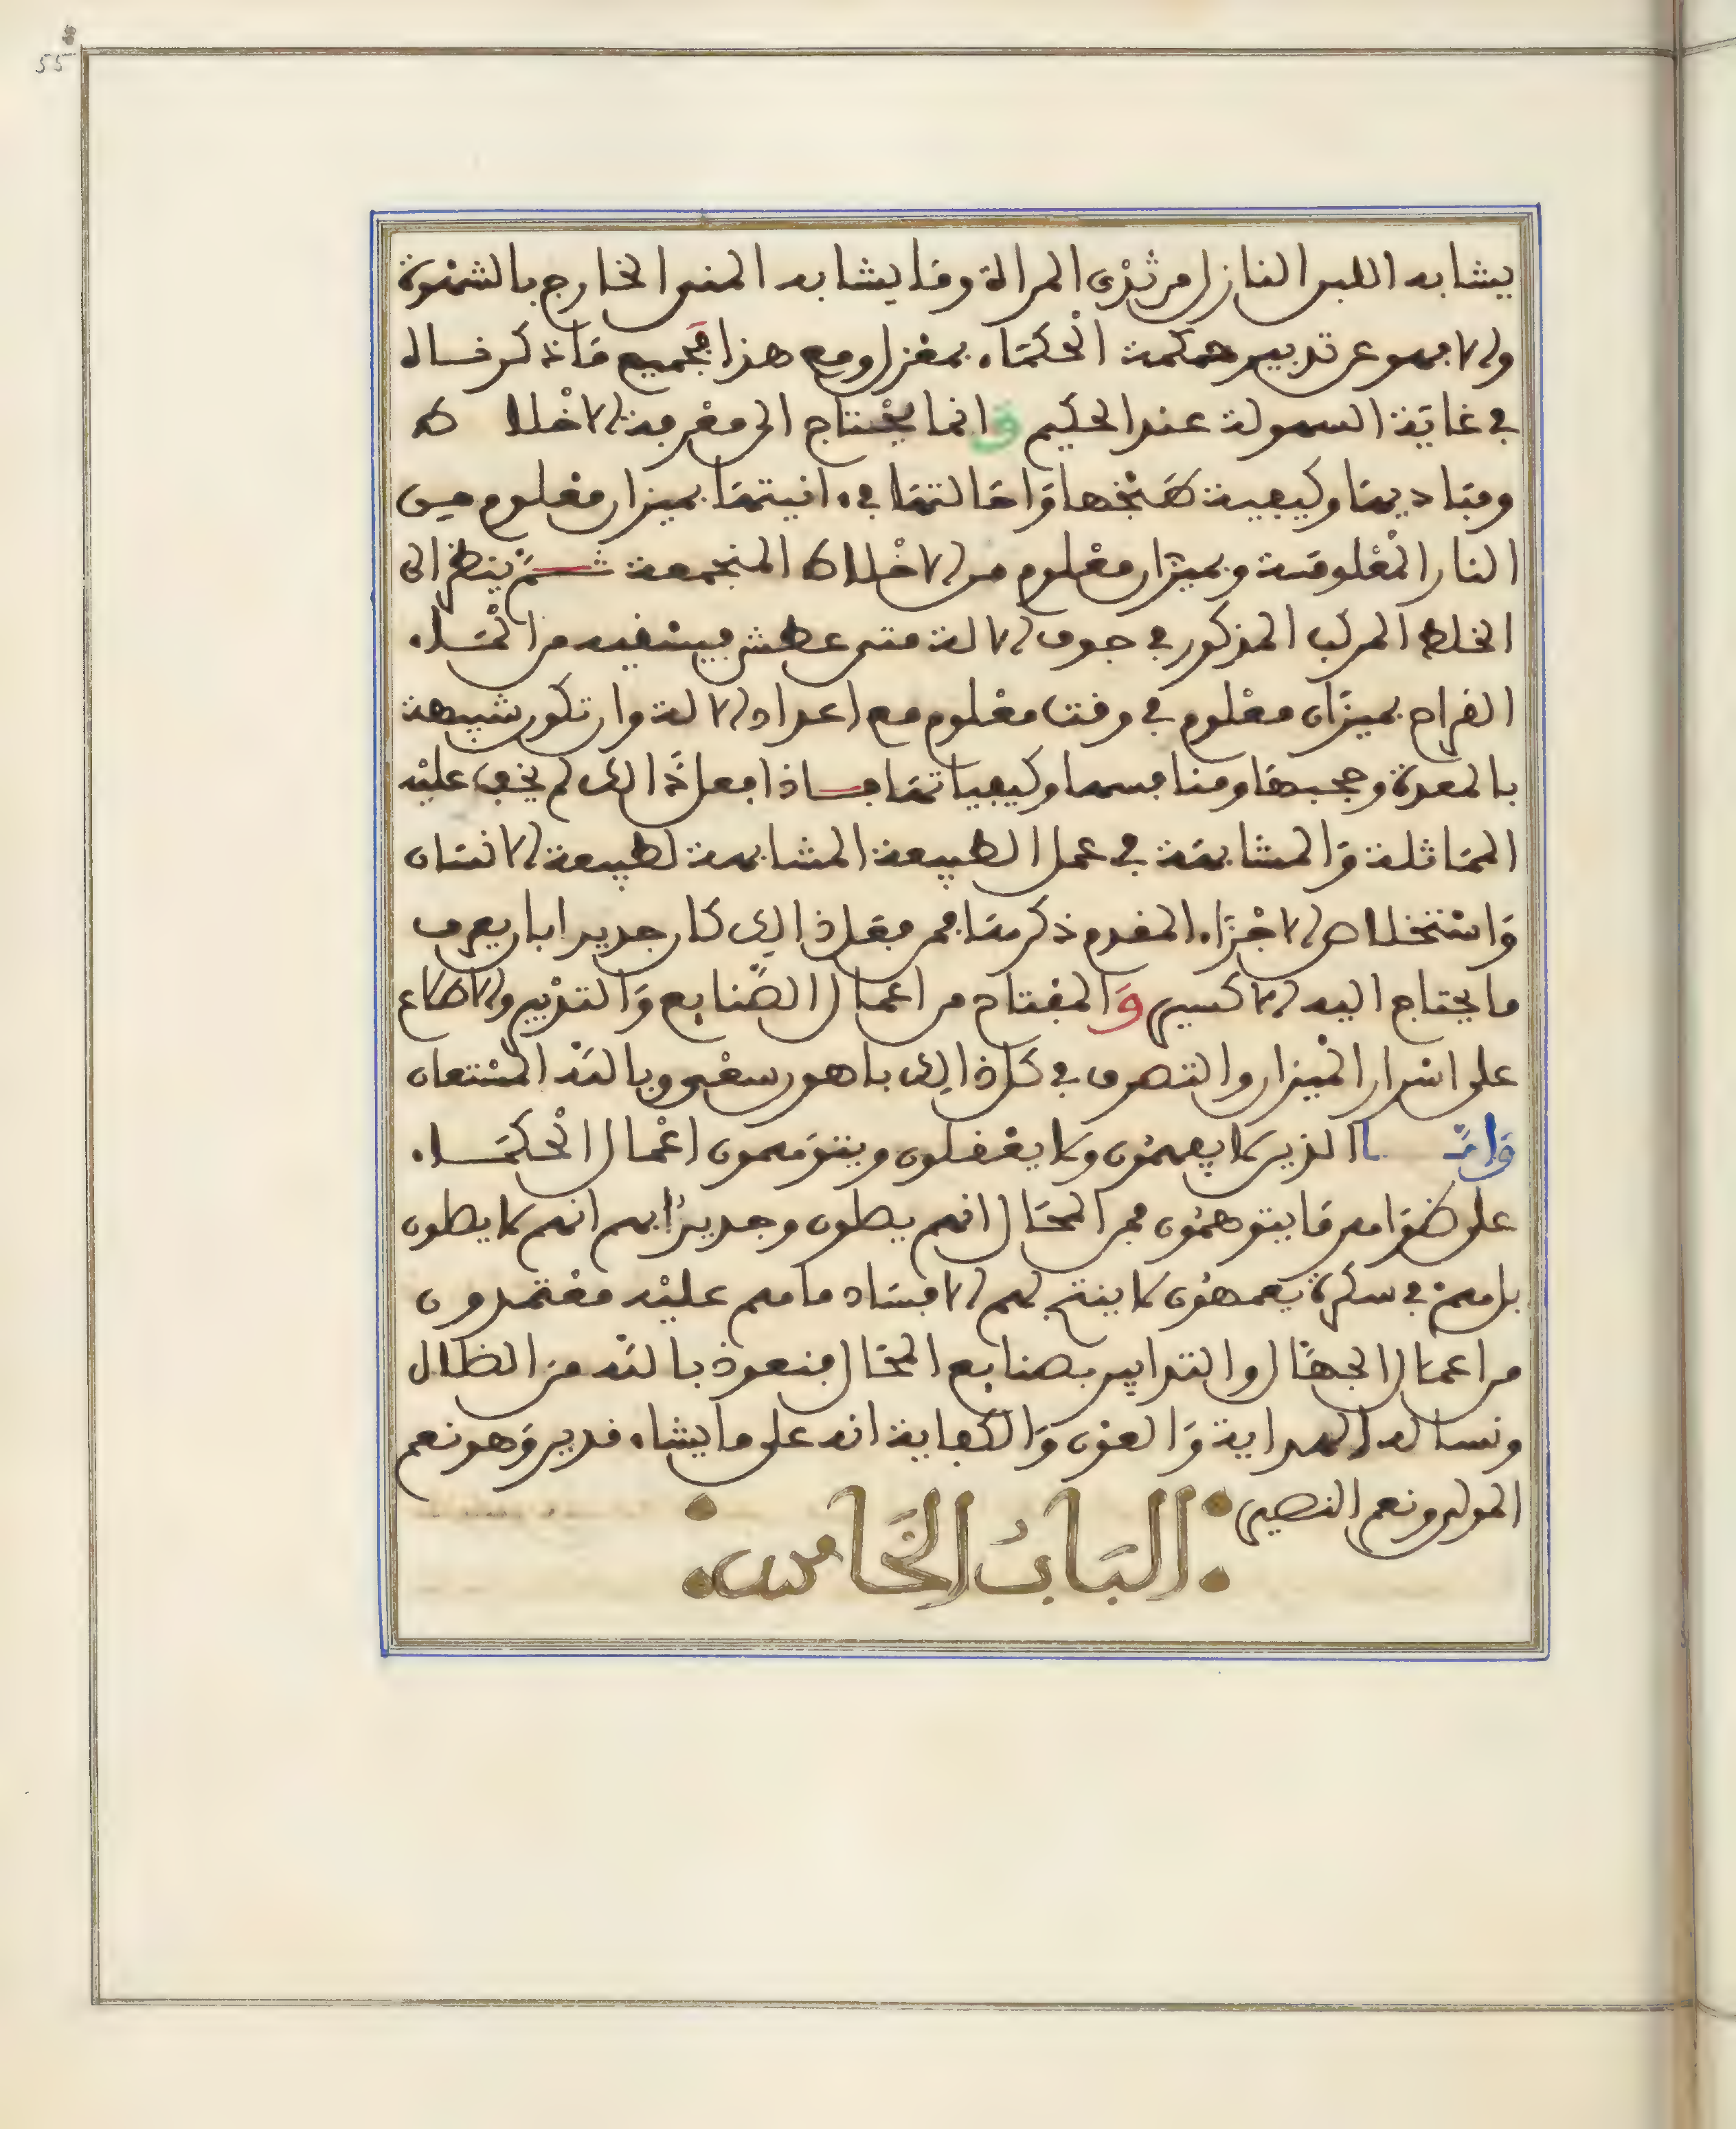 55
يشابه اللبن النازل من ثدى المراة وما يشابه المنى الخارج بالشهوة
والا فهو عن تدبير حكمة الحكماء بمعزل ومع هذا فجميع ما نذكر فساله
في غاية السهولة عند الحكيم وانما يحتاج الى معرفة الاخلا ط
ومباديها وكيفية طبخها واحالتها في انيتها بميزان معلوم من
النار المعلومة وبميزان معلوم من الاخلاط المنجمعة ثم ينظر الى
الخلط المركب المذكور في جوف الالة متى عطش فيسقيه من الماء
القراح بميزان معلوم في وقت معلوم مع اعداد الالة وان تكون شبيهة
بالمعدة وحجبها ومنافسها وكيفياتها فاذا فعل ذالك لم يخف عليه
المماثلة والمشابهة في عمل الطبيعة المشابهة لطبيعة الانسان
واستخلاص الاجزاء المقدم ذكرها فمن فعل ذالك كان جديرا بان يعرف
ما يحتاج اليه الاكسير والمفتاح من اعمال الصنايع والتدبير والاطلاع
على اسرار الميزان والتصرف في كل ذالك باهون سعى وبالله المستعان
واما الذين لا يفهمون ولا يعقلون ويتوهمون اعمال الحكماء
على ظواهر ما يتوهمون من المحال انهم يصلون وجديرا بهم انهم لا يصلون
بل هم في سكرة يعمهون لا ينتج لهم الا فساد ما هم عليه معتمدون
من اعمال الجهال والتدابير بصنايع المحال فنعوذ بالله من الظلال
ونساله الهداية والعون والكفاية انه على ما يشاء قدير وهو نعم
المولى ونعم النصير
الباب الخامس